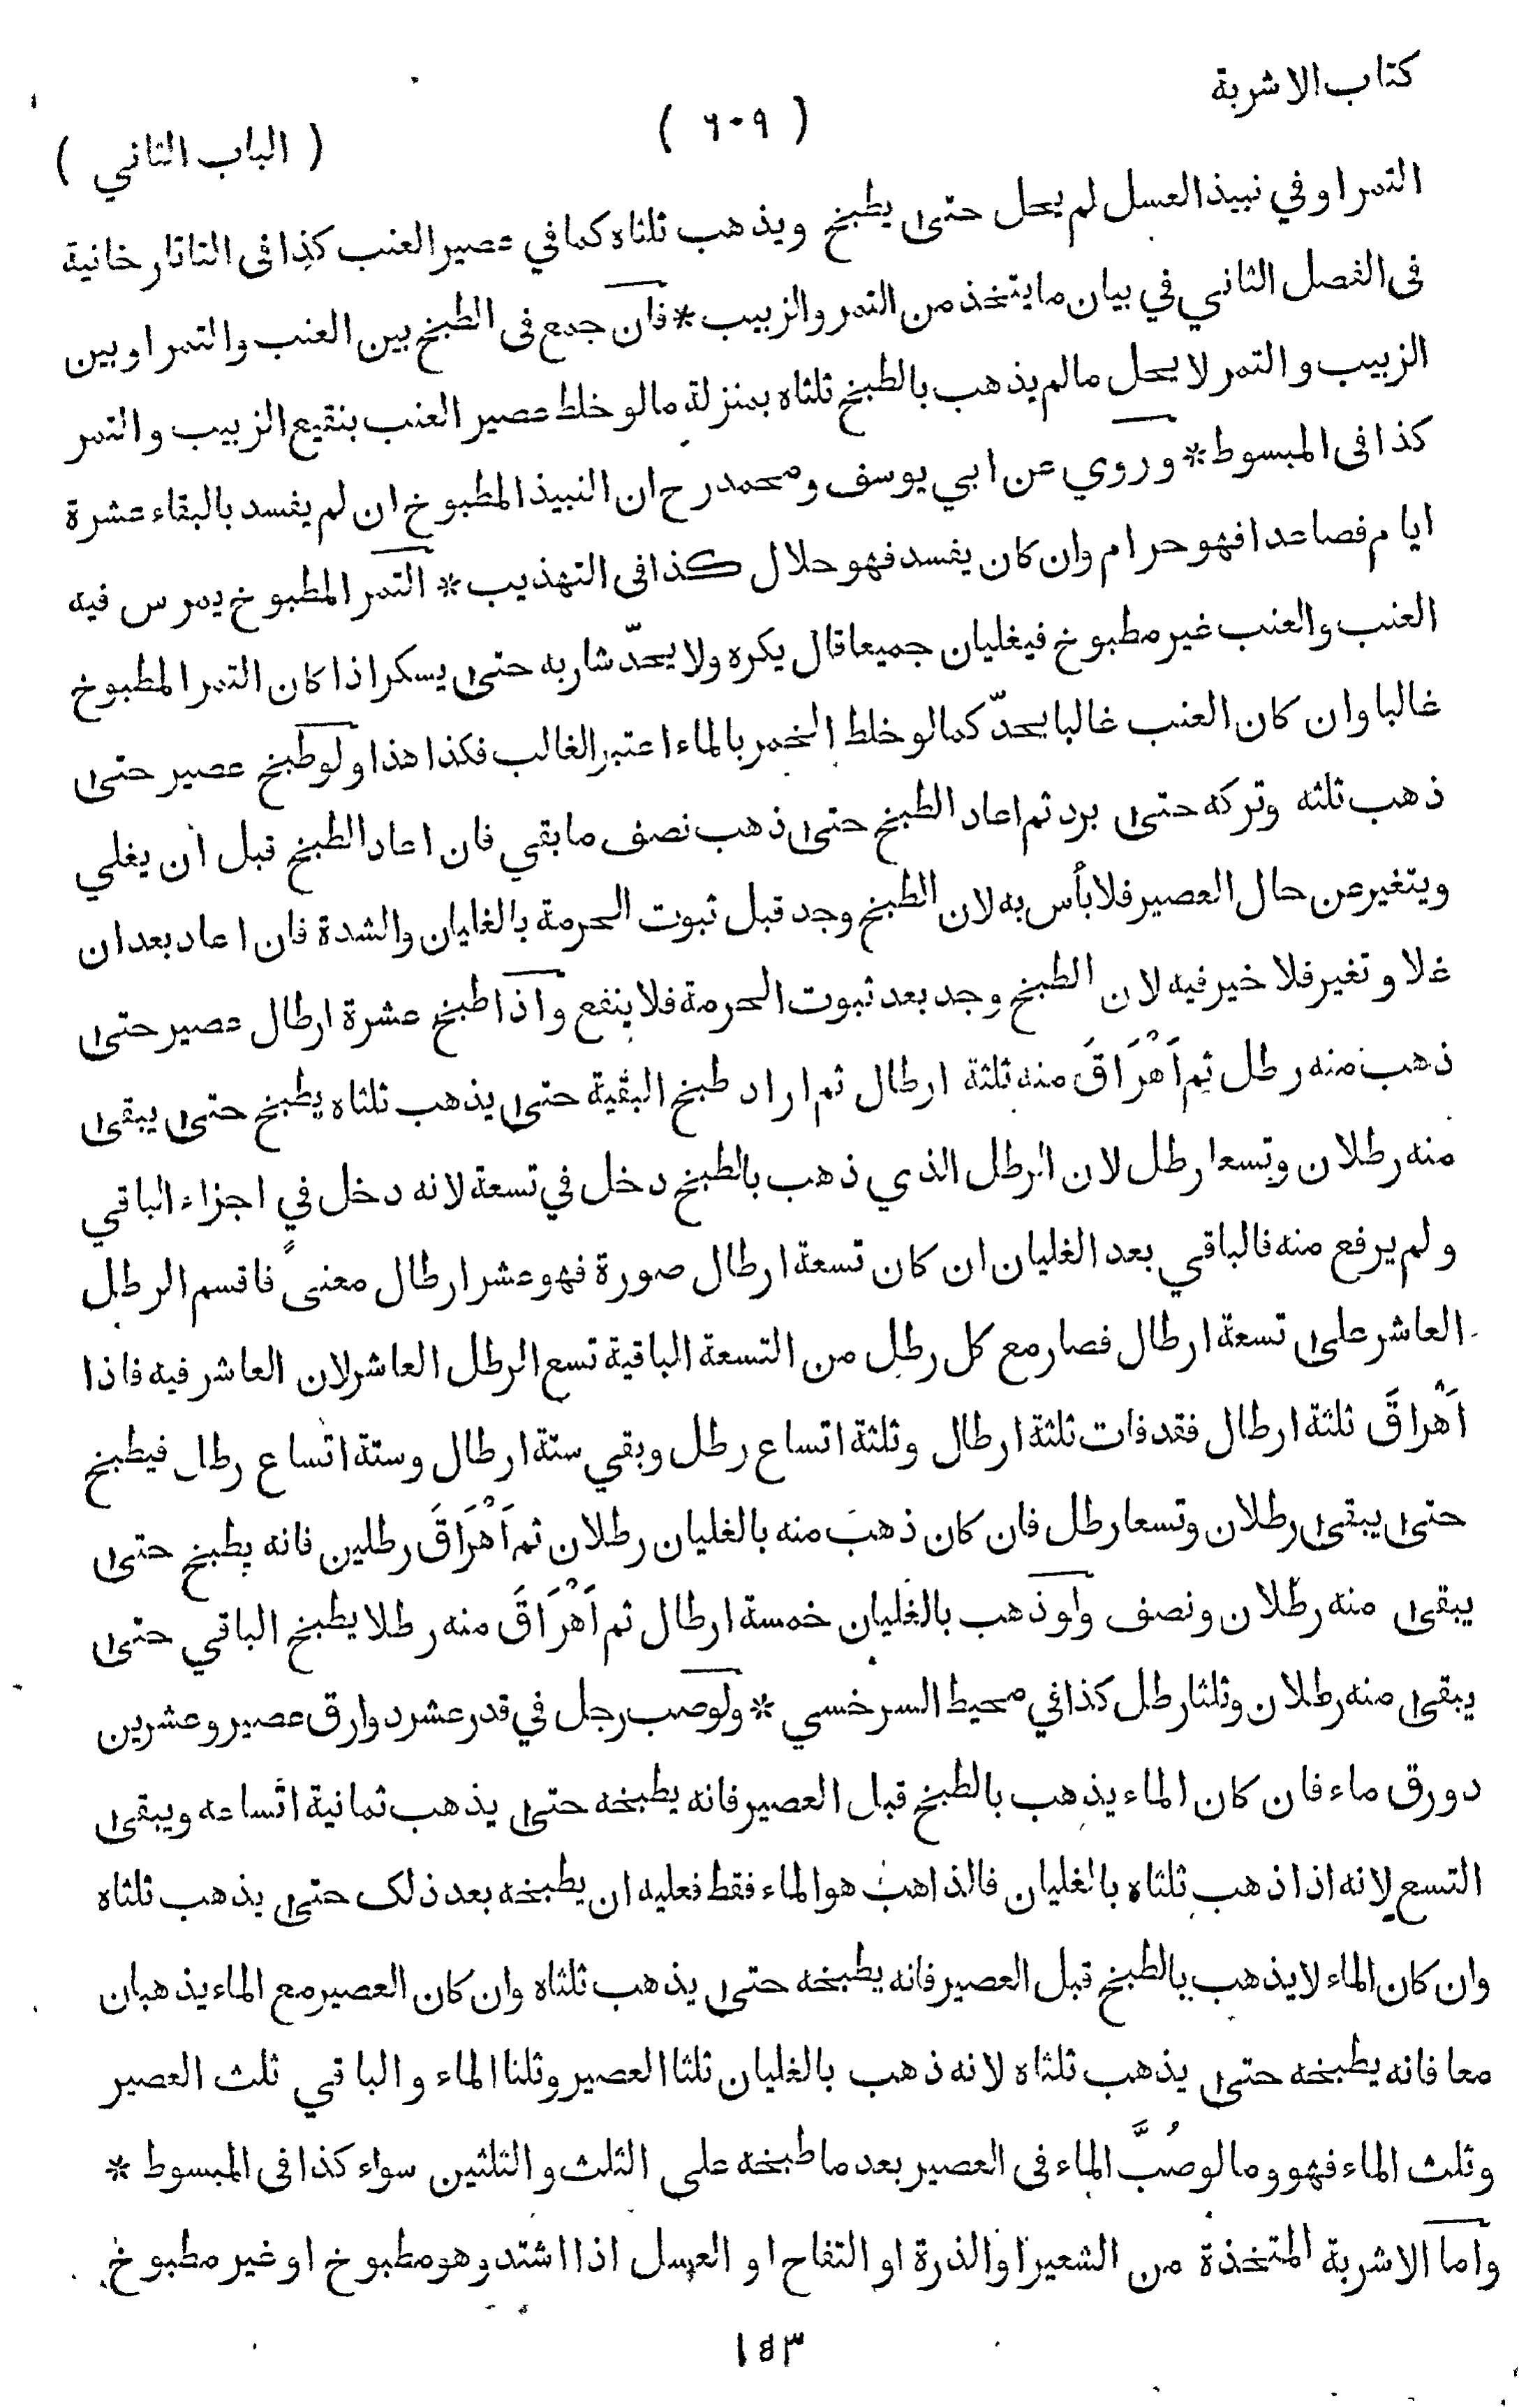 كتاب الاشربة
( ٦٠٩ )
( الباب الثاني )
التمر او في نبيذ العسل لم يحل حتى يطبخ ويذهب ثلثاه كما في عصير العنب كذا فى التاتارخانية
فى الفصل الثاني في بيان ما يتخذ من التمر والزبيب * فان جمع فى الطبخ بين العنب والتمر او بين
الزبيب والتمر لا يحل مالم يذهب بالطبخ ثلثاه بمنزلة مالو خلط عصير العنب بنقيع الزبيب والتمر
كذا فى المبسوط * وروي عن ابي يوسف ومحمد رح ان النبيذ المطبوخ ان لم يفسد بالبقاء عشرة
ايام فصاعدا فهو حرام وان كان يفسد فهو حلال كذا فى التهذيب * التمر المطبوخ يمرس فيه
العنب والعنب غير مطبوخ فيغليان جميعا قال يكره ولا يحدّ شاربه حتى يسكر اذا كان التمر المطبوخ
غالبا وان كان العنب غالبا يحدّ كما لو خلط الخمر بالماء اعتبر الغالب فكذا هذا ولو طبخ عصير حتى
ذهب ثلثه وتركه حتى برد ثم اعاد الطبخ حتى ذهب نصف ما بقي فان اعاد الطبخ قبل ان يغلي
ويتغير عن حال العصير فلا بأس به لان الطبخ وجد قبل ثبوت الحرمة بالغليان والشدة فان اعاد بعد ان
غلا وتغير فلا خير فيه لان الطبخ وجد بعد ثبوت الحرمة فلا ينفع واذا طبخ عشرة ارطال عصير حتى
ذهب منه رطل ثم اَهْرَاقَ منه ثلثة ارطال ثم اراد طبخ البقية حتى يذهب ثلثاه يطبخ حتى يبقى
منه رطلان وتسعا رطل لان الرطل الذي ذهب بالطبخ دخل في تسعة لانه دخل في اجزاء الباقي
ولم يرفع منه فالباقي بعد الغليان ان كان تسعة ارطال صورة فهو عشر ارطال معنىً فاقسم الرطل
العاشر على تسعة ارطال فصار مع كل رطل من التسعة الباقية تسع الرطل العاشر لان العاشر فيه فاذا
اَهْراقَ ثلثة ارطال فقد فات ثلثة ارطال وثلثة اتساع رطل وبقي ستة ارطال وستة اتساع رطل فيطبخ
حتى يبقى رطلان وتسعا رطل فان كان ذهب منه بالغليان رطلان ثم اَهْرَاقَ رطلين فانه يطبخ حتى
يبقى منه رطلان ونصف ولو ذهب بالغليان خمسة ارطال ثم اَهْرَاقَ منه رطلا يطبخ الباقي حتى
يبقى منه رطلان وثلثا رطل كذا في محيط السرخسي * ولو صب رجل في قدر عشر دوارق عصير وعشرين
دورق ماء فان كان الماء يذهب بالطبخ قبل العصير فانه يطبخه حتى يذهب ثمانية اتساعه ويبقى
التسع لانه اذا ذهب ثلثاه بالغليان فالذاهب هو الماء فقط فعليه ان يطبخه بعد ذلك حتى يذهب ثلثاه
وان كان الماء لا يذهب بالطبخ قبل العصير فانه يطبخه حتى يذهب ثلثاه وان كان العصير مع الماء يذهبان
معا فانه يطبخه حتى يذهب ثلثاه لانه ذهب بالغليان ثلثا العصير وثلثا الماء والباقي ثلث العصير
وثلث الماء فهو وما لو صُبَّ الماء فى العصير بعد ما طبخه على الثلث والثلثين سواء كذا فى المبسوط *
واما الاشربة المتخذة من الشعير او الذرة او التفاح او العسل اذا اشتد وهو مطبوخ او غير مطبوخ
١٥٣